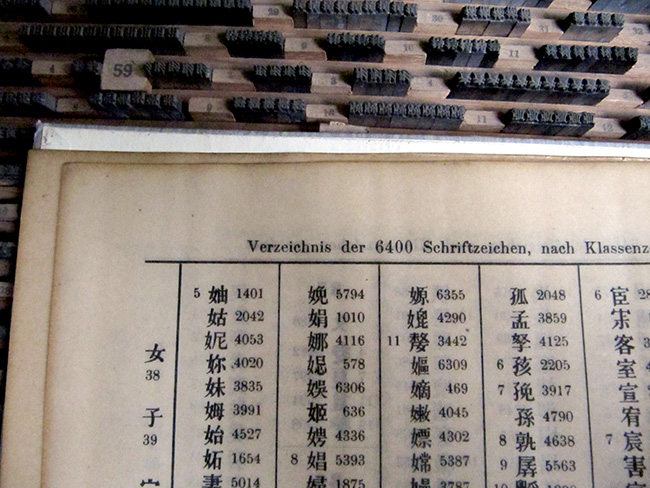 59
Verzeichnis der 6400 Schriftzeichen, nach Klassenz
女
38
子
39
5 妯 1401
姑 2042
妮 4053
妳 4020
妹 3835
姆 3991
始 4527
妬 1654
妻 5014
娩 5794
娟 1010
娜 4116
578
娛 6306
姬 636
娉 4336
8 娼 5393
婦 1875
嫄 6355
媲 4290
11 嫠 3442
嫗 6309
嫡 469
嫩 4045
嫖 4302
嫦 5387
3787
孤 2048
孟 3859
孥 4125
6 孩 2205
7 挽 3917
孫 4790
8 孰 4638
9 孱 5563
10
6 宦
宋
客
室
宣
宥
7 宸
害